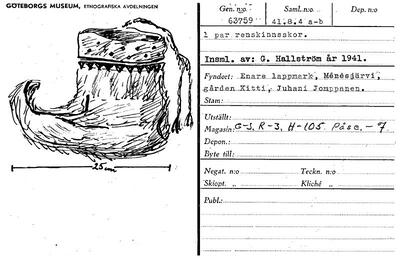 GÖTEBORGS MUSEUM, ETNOGRAFISKA AVDELNINGEN
25 cm
Gen. n:o Saml.-n:o Dep. n:o
63759 41.8.4 a-b
1 par renskinnsskor.
Insml. av: G. Hallström år 1941.
Fyndort: Enare lappmark, Ménesjärvi,
gården Xitti, Juhani Jomppanen.
Stam:
Utställt:
Magasin: G-S, R-3, H-105 Påse.-7
Depon.:
Byte till:
Negat. n:o Teckn. n:o
Skiopt. „ Kliché „
Publ.: